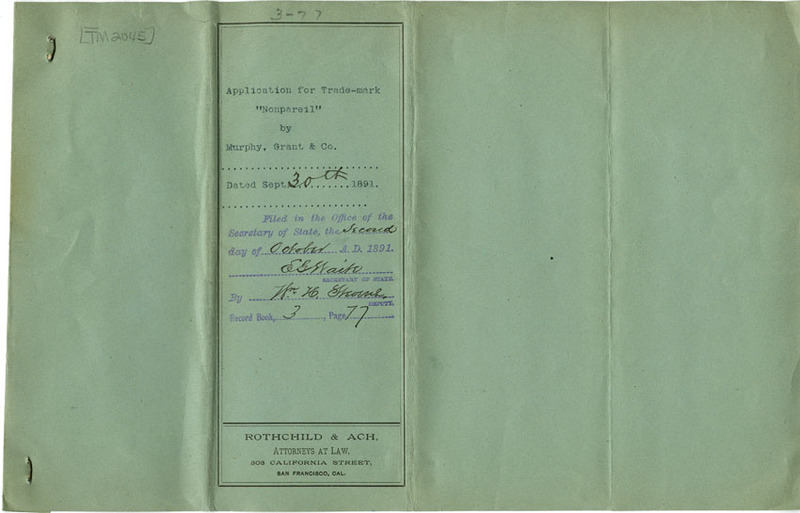 3-77
[TM2045]
Application for Trade-mark
"Nonpareil"
by
Murphy, Grant & Co.
Dated Sept. 30th 1891.
Filed in the Office of the
Secretary of State, the Second
day of October A. D. 1891.
E G Waite
SECRETARY OF STATE.
By Wm. H.
DEPUTY.
Record Book, 3, Page 77
ROTHCHILD & ACH,
ATTORNEYS AT LAW,
303 CALIFORNIA STREET,
SAN FRANCISCO, CAL.